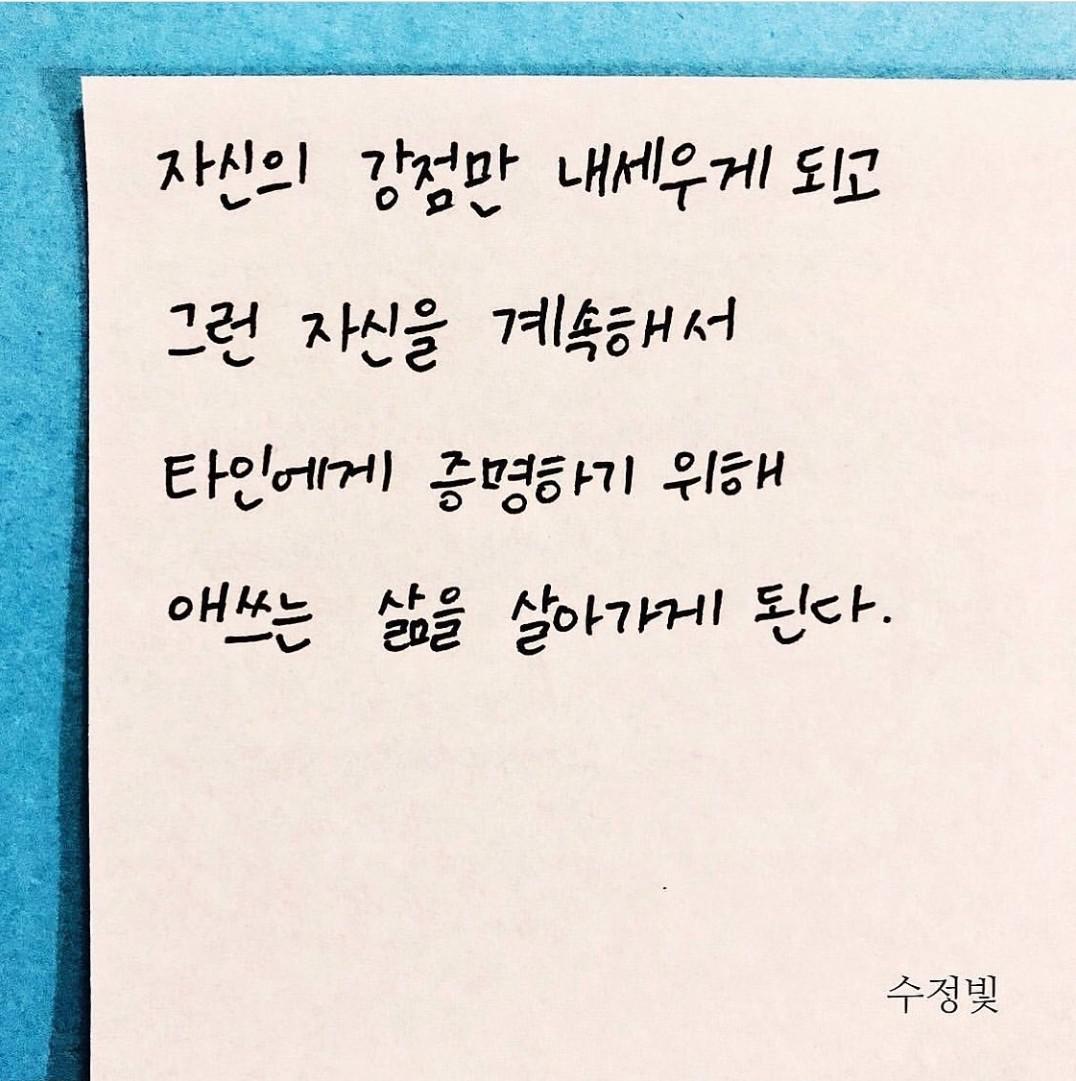 자신의 강점만 내세우게 되고
그런 자신을 계속해서
타인에게 증명하기 위해
애쓰는 삶을 살아가게 된다.
수정빛